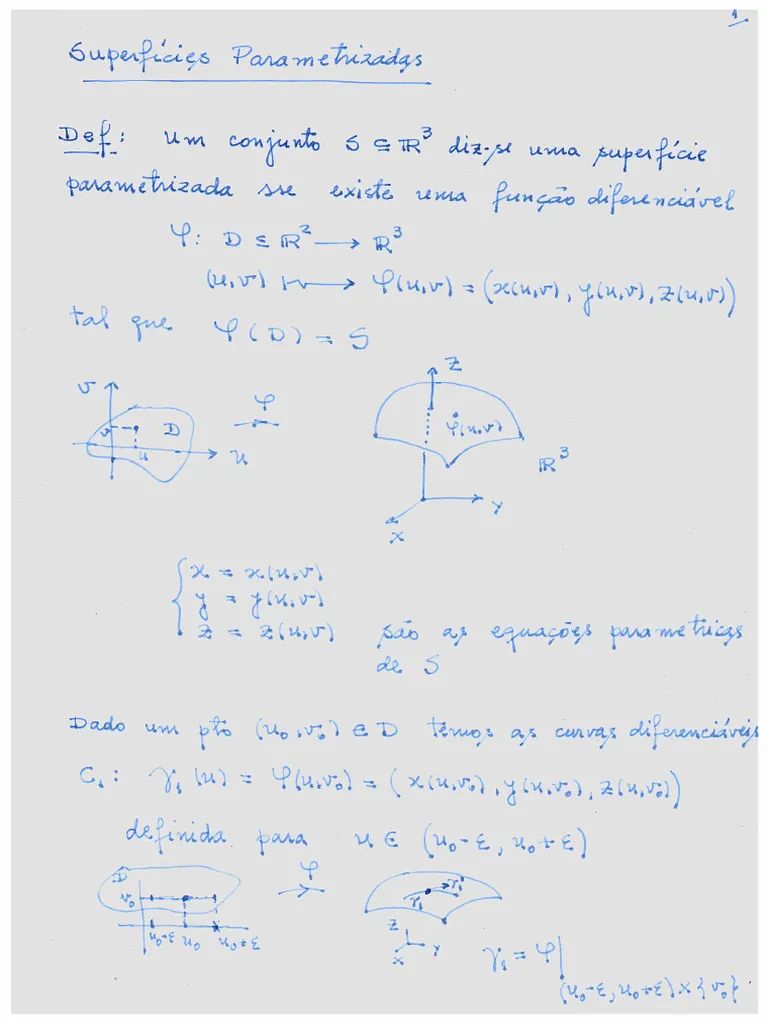 1
Superfícies Parametrizadas
Def: Um conjunto S ⊆ ℝ³ diz-se uma superfície
parametrizada sse existe uma função diferenciável
φ: D ⊆ ℝ² ⟶ ℝ³
(u,v) ⟼ φ(u,v) = (x(u,v), y(u,v), z(u,v))
tal que φ(D) = S
v φ z
v D φ(u,v)
u u ℝ³
y
x
x = x(u,v)
y = y(u,v)
z = z(u,v) são as equações parametricas
de S
Dado um pto (u₀,v₀) ∈ D temos as curvas diferenciáveis
C₁: γ₁(u) = φ(u,v₀) = (x(u,v₀), y(u,v₀), z(u,v₀))
definida para u ∈ (u₀-ε, u₀+ε)
D φ
v₀ γ₁ γ₁'
u₀-ε u₀ u₀+ε z
x y
γ₁ = φ|
(u₀-ε, u₀+ε) × {v₀}